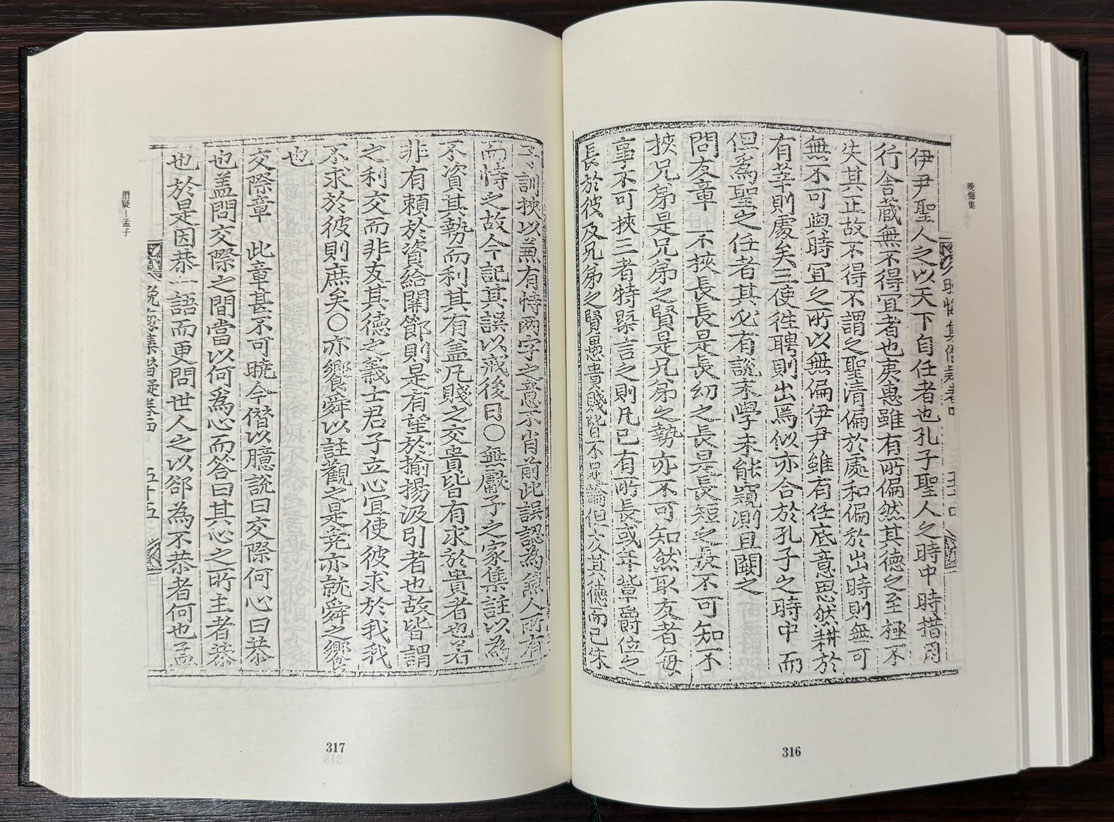 晚悔集
伊尹聖人之以天下自任者也孔子聖人之時中時措用
行舍藏無不得宜者也夷惠雖有所偏然其德之至極不
失其正故不得不謂之聖清偏於處和偏於出時則無可
無不可與時宜之所以無偏伊尹雖有任底意思然耕於
有莘則處矣三使徃聘則出焉似亦合於孔子之時中而
但爲聖之任者其必有說末學未能窺測且闕之
問友章 不挾長長是長幼之長是長短之長不可知不
挾兄弟是兄弟之賢是兄弟之勢亦不可知然取友者每
事不可挾三者特擧言之則凡己有所長或年輩爵位之
長於彼及兄弟之賢愚貴賤皆不足論但友其德而已朱
316
子訓挾以兼有恃兩字之意不肖前此誤認為兼人所有
而恃之故今記其誤以戒後日〇無獻子之家集註以為
不資其勢而利其有盖凡賤之交貴皆有求於貴者也若
非有頼於資給關節則是有望於揄揚汲引者也故皆謂
之利交而非友其德之義士君子立心宜使彼求於我我
不求於彼則庶矣〇亦饗舜以註觀之是尭亦就舜之饗
也
交際章 此章甚不可曉今僭以臆說曰交際何心曰恭
也盖問交際之間當以何為心而答曰其心之所主者恭
也於是因恭一語而更問世人之以郤為不恭者何也孟
晚悔集僭疑卷四 五十五
僭疑–孟子
317